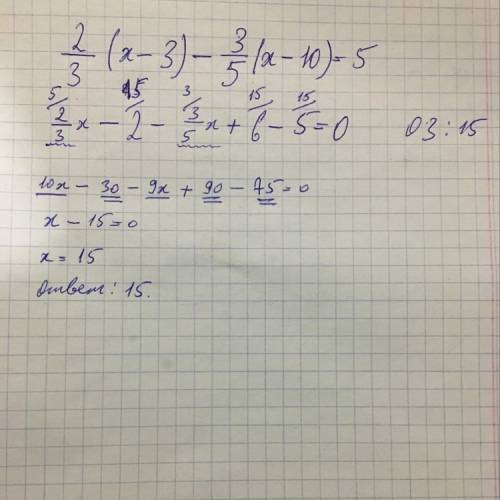 2/3 (x − 3) − 3/5 (x − 10) = 5
5 15 3 15 15
2/3 x − 2 − 3/5 x + 6 − 5 = 0 ОЗ: 15
10x − 30 − 9x + 90 − 75 = 0
x − 15 = 0
x = 15
Ответ: 15.